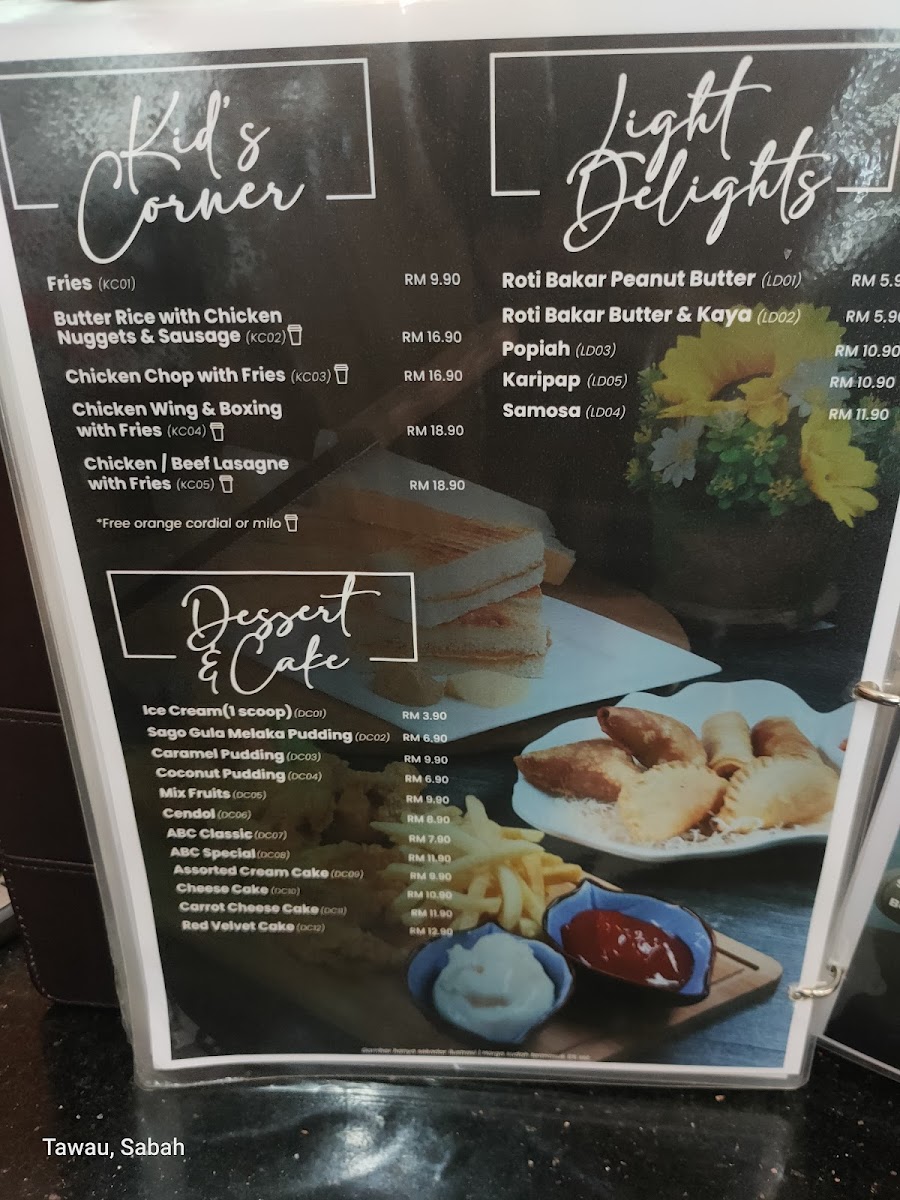 Kid's
Corner
Fries (KC01) RM 9.90
Butter Rice with Chicken
Nuggets & Sausage (KC02) RM 16.90
Chicken Chop with Fries (KC03) RM 16.90
Chicken Wing & Boxing
with Fries (KC04) RM 18.90
Chicken / Beef Lasagne
with Fries (KC05) RM 18.90
*Free orange cordial or milo
Light
Delights
Roti Bakar Peanut Butter (LD01) RM 5.9
Roti Bakar Butter & Kaya (LD02) RM 5.90
Popiah (LD03) RM 10.90
Karipap (LD05) RM 10.90
Samosa (LD04) RM 11.90
Dessert
& Cake
Ice Cream(1 scoop) (DC01) RM 3.90
Sago Gula Melaka Pudding (DC02) RM 6.90
Caramel Pudding (DC03) RM 9.90
Coconut Pudding (DC04) RM 6.90
Mix Fruits (DC05) RM 9.90
Cendol (DC06) RM 8.90
ABC Classic (DC07) RM 7.90
ABC Special (DC08) RM 11.90
Assorted Cream Cake (DC09) RM 9.90
Cheese Cake (DC10) RM 10.90
Carrot Cheese Cake (DC11) RM 11.90
Red Velvet Cake (DC12) RM 12.90
Gambar hanya sekadar ilustrasi
Tawau, Sabah